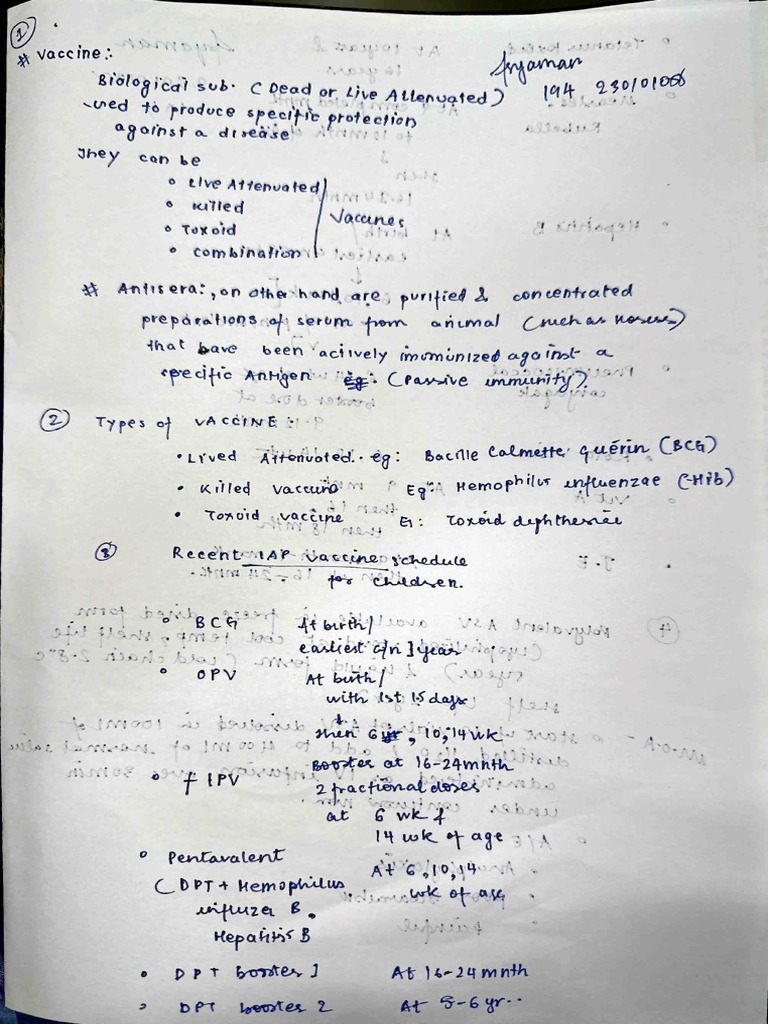 ①
# Vaccine:
Aryaman
194 230101000
Biological sub. (Dead or Live Attenuated)
used to produce specific protection
against a disease
They can be
• Live Attenuated
• Killed
• Toxoid
• combination
Vaccines
# Antisera:, on other hand are purified & concentrated
preparations of serum from animal (such as Horses)
that have been actively immunized against a
specific Antigen eg: (Passive immunity).
② Types of VACCINE:
• Lived Attenuated. eg: Bacille Calmette guérin (BCG)
• Killed Vaccine Eg: Hemophilus influenzae (-Hib)
• Toxoid vaccine Eg: Toxoid diphtheriae
③ Recent IAP vaccine schedule
for children.
• BCG At birth/
earliest c/n 1 year
• OPV At birth/
with 1st 15 days
↓
then 6 , 10, 14 wk
Booster at 16-24 mnth
• f IPV 2 fractional doses
at 6 wk &
14 wk of age
• Pentavalent At 6, 10, 14
(DPT + Hemophilus wk of age
influenza B.
Hepatitis B
• DPT booster 1 At 16-24 mnth
• DPT booster 2 At 5-6 yr..